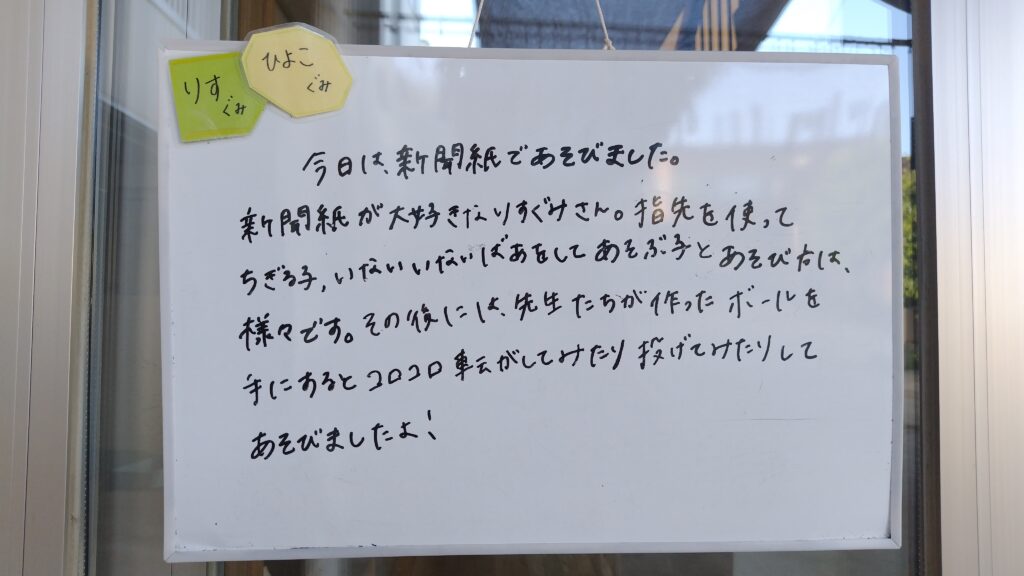 りす
ぐみ
ひよこ
ぐみ
今日は、新聞紙であそびました。
新聞紙が大好きなりすぐみさん。指先を使って
ちぎる子、いないいないばあをしてあそぶ子とあそび方は、
様々です。その後には、先生たちが作ったボールを
手にするとコロコロ転がしてみたり投げてみたりして
あそびましたよ!